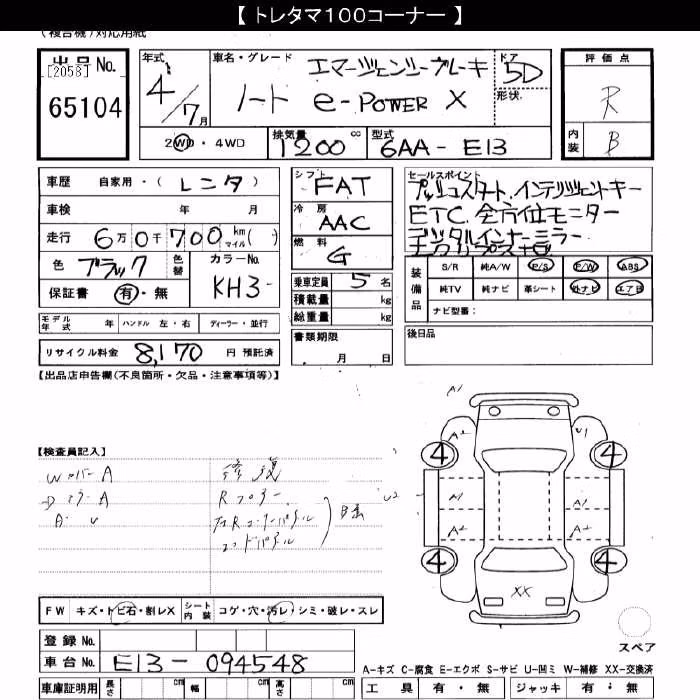 【 トレタマ100コーナー 】
(複合機)対応用紙
出品No. [2058] 65104
年式 4/7月
車名・グレード エマージェンシーブレーキ
ノート e-POWER X
ドア 5D
形状
評価点 R
内装 B
2WD・4WD
排気量 1200 cc
型式 6AA-E13
車歴 自家用・(レンタ)
車検 年 月
走行 6万0千700 km マイル( )
色 ブラック 色替 カラーNo. KH3-
保証書 有・無
シフト FAT
冷房 AAC
燃料 G
乗車定員 5名
積載量 kg
総重量 kg
書類期限
月 日
セールスポイント
プッシュスタート、インテリジェントキー
ETC 全方位モニター
デジタルインナーミラー
エマブレ
装備品 S/R 純A/W P/S P/W ABS
純TV 純ナビ 革シート 外ナビ エアB
ナビ型番:
後日品
モデル年式 年 ハンドル 左・右 ディーラー・並行
リサイクル料金 8,170 円 預託済
【出品店申告欄(不良箇所・欠品・注意事項等)】
【検査員記入】
Wカバー A
ドアミラー A
A・U
修復
Rフロアー
左Rコーナーパネル
エンドパネル
A1
A2
U1
4
4
U2
A1
A1
A2
A2
4
4
XX
スペア
FW キズ・トビ石・割レX シート内装 コゲ・穴・汚レ・シミ・破レ・スレ
登録No.
車台No. E13-094548
A-キズ C-腐食 E-エクボ S-サビ U-凹ミ W-補修 XX-交換済
車庫証明用 長さ cm 幅 cm 高さ cm
工具 有・無 ジャッキ 有・無